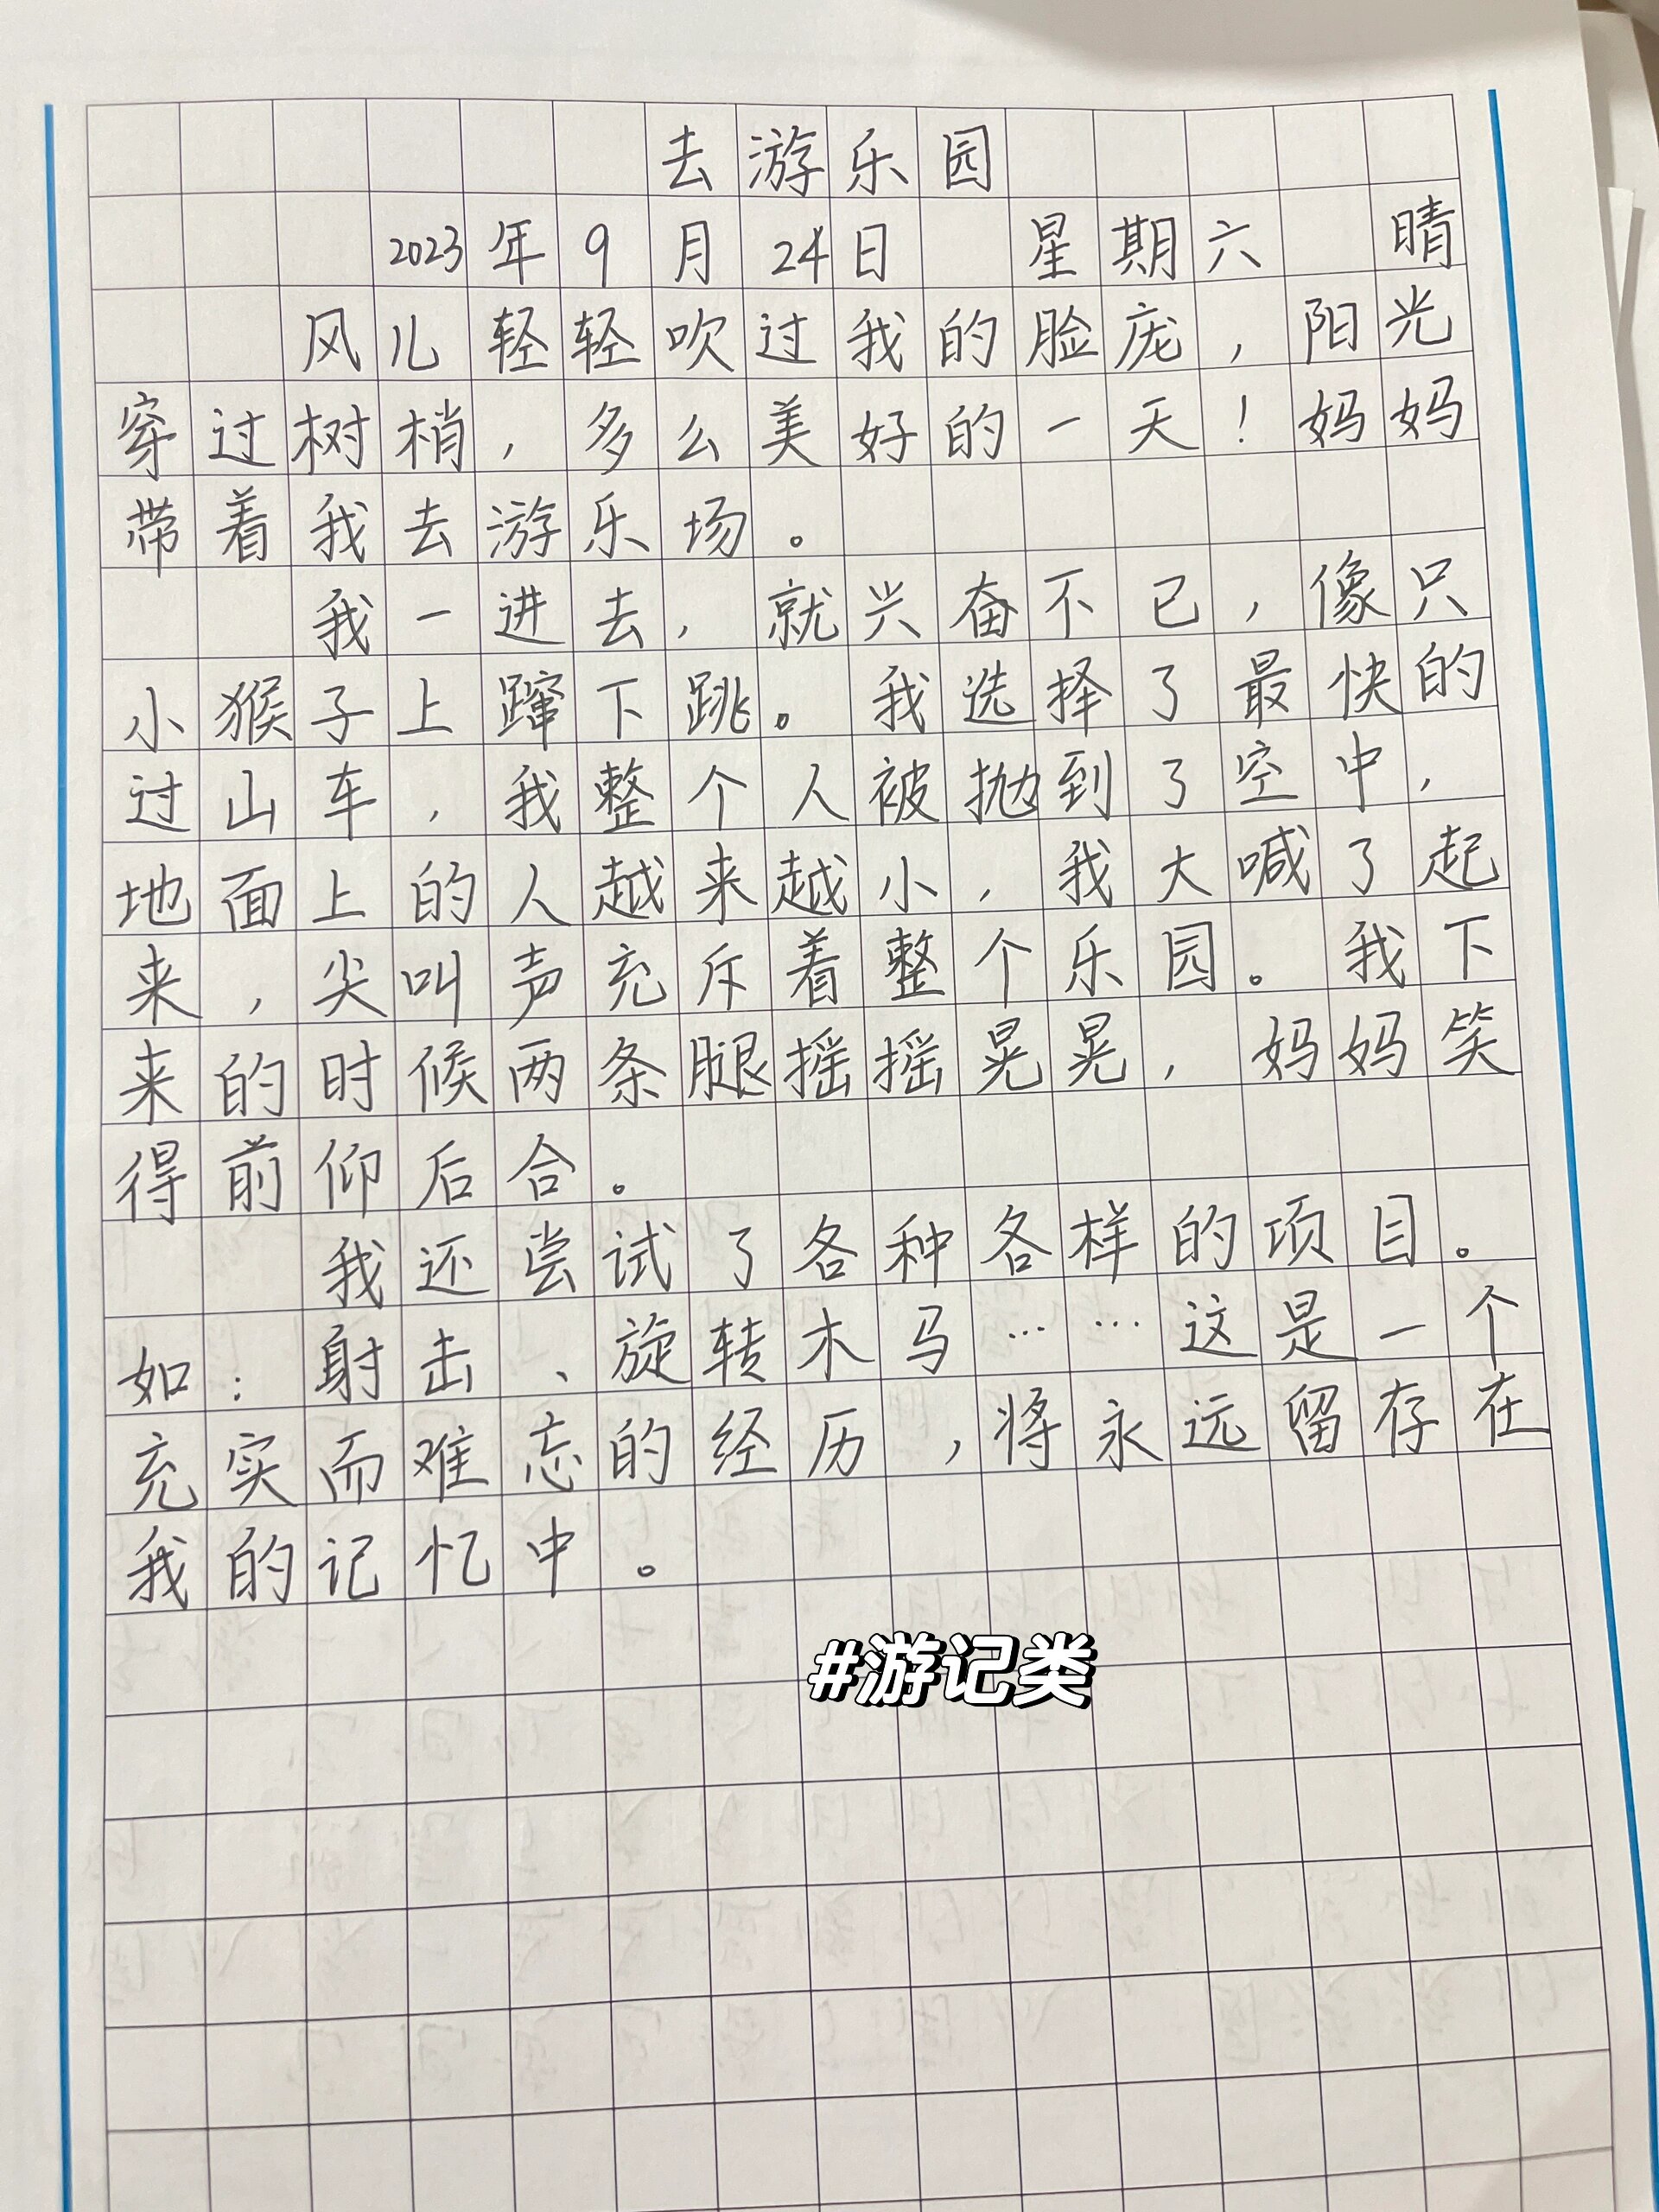 去游乐园
2023年9月24日 星期六 晴
风儿轻轻吹过我的脸庞,阳光
穿过树梢,多么美好的一天!妈妈
带着我去游乐场。
我一进去,就兴奋不已,像只
小猴子上蹿下跳。我选择了最快的
过山车,我整个人被抛到了空中,
地面上的人越来越小,我大喊了起
来,尖叫声充斥着整个乐园。我下
来的时候两条腿摇摇晃晃,妈妈笑
得前仰后合。
我还尝试了各种各样的项目。
如:射击、旋转木马……这是一个
充实而难忘的经历,将永远留存在
我的记忆中。
#游记类